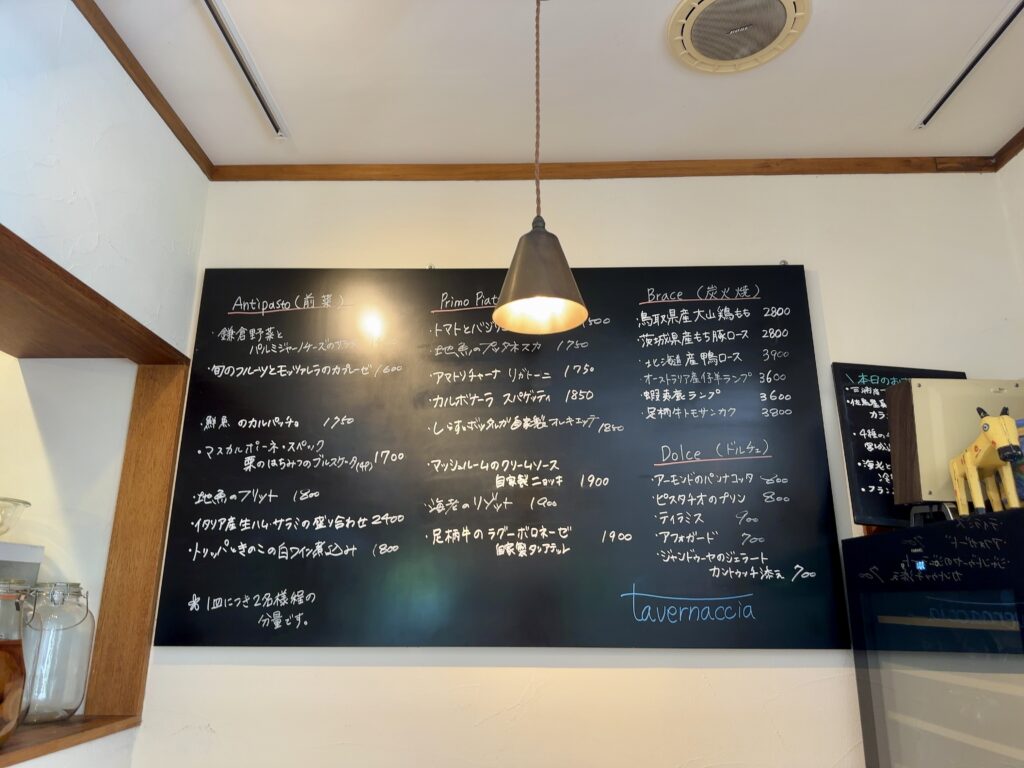 Antipasto (前菜)
・鎌倉野菜と
パルミジャーノチーズの
・旬のフルーツとモッツァレラのカプレーゼ 1600
・鮮魚のカルパッチョ 1750
・マスカルポーネ・スペック
栗のはちみつのブルスケッタ(4P) 1700
・地魚のフリット 1800
・イタリア産生ハム サラミの盛り合わせ 2400
・トリッパときのこの白ワイン煮込み 1800
※1皿につき2名様程の
分量です。
Primo Piat
・トマトとバジリ 1500
・地魚のプッタネスカ 1750
・アマトリチャーナ リガトーニ 1750
・カルボナーラ スパゲッティ 1850
・しらすとボッタルガ 自家製オレキエッテ 1850
・マッシュルームのクリームソース
自家製ニョッキ 1900
・海老のリゾット 1900
・足柄牛のラグーボロネーゼ
自家製タリアテッレ 1900
Brace (炭火焼)
・鳥取県産大山鶏もも 2800
・茨城県産もち豚ロース 2800
・北海道産鴨ロース 3900
・オーストラリア産仔羊ランプ 3600
・蝦夷鹿ランプ 3600
・足柄牛トモサンカク 3800
Dolce (ドルチェ)
・アーモンドのパンナコッタ 800
・ピスタチオのプリン 800
・ティラミス 900
・アフォガード 700
・ジャンドゥーヤのジェラート
カントゥッチ添え 700
tavernaccia
＼本日のお
カラ
・4種の
・海老と
・フラン
BOSE